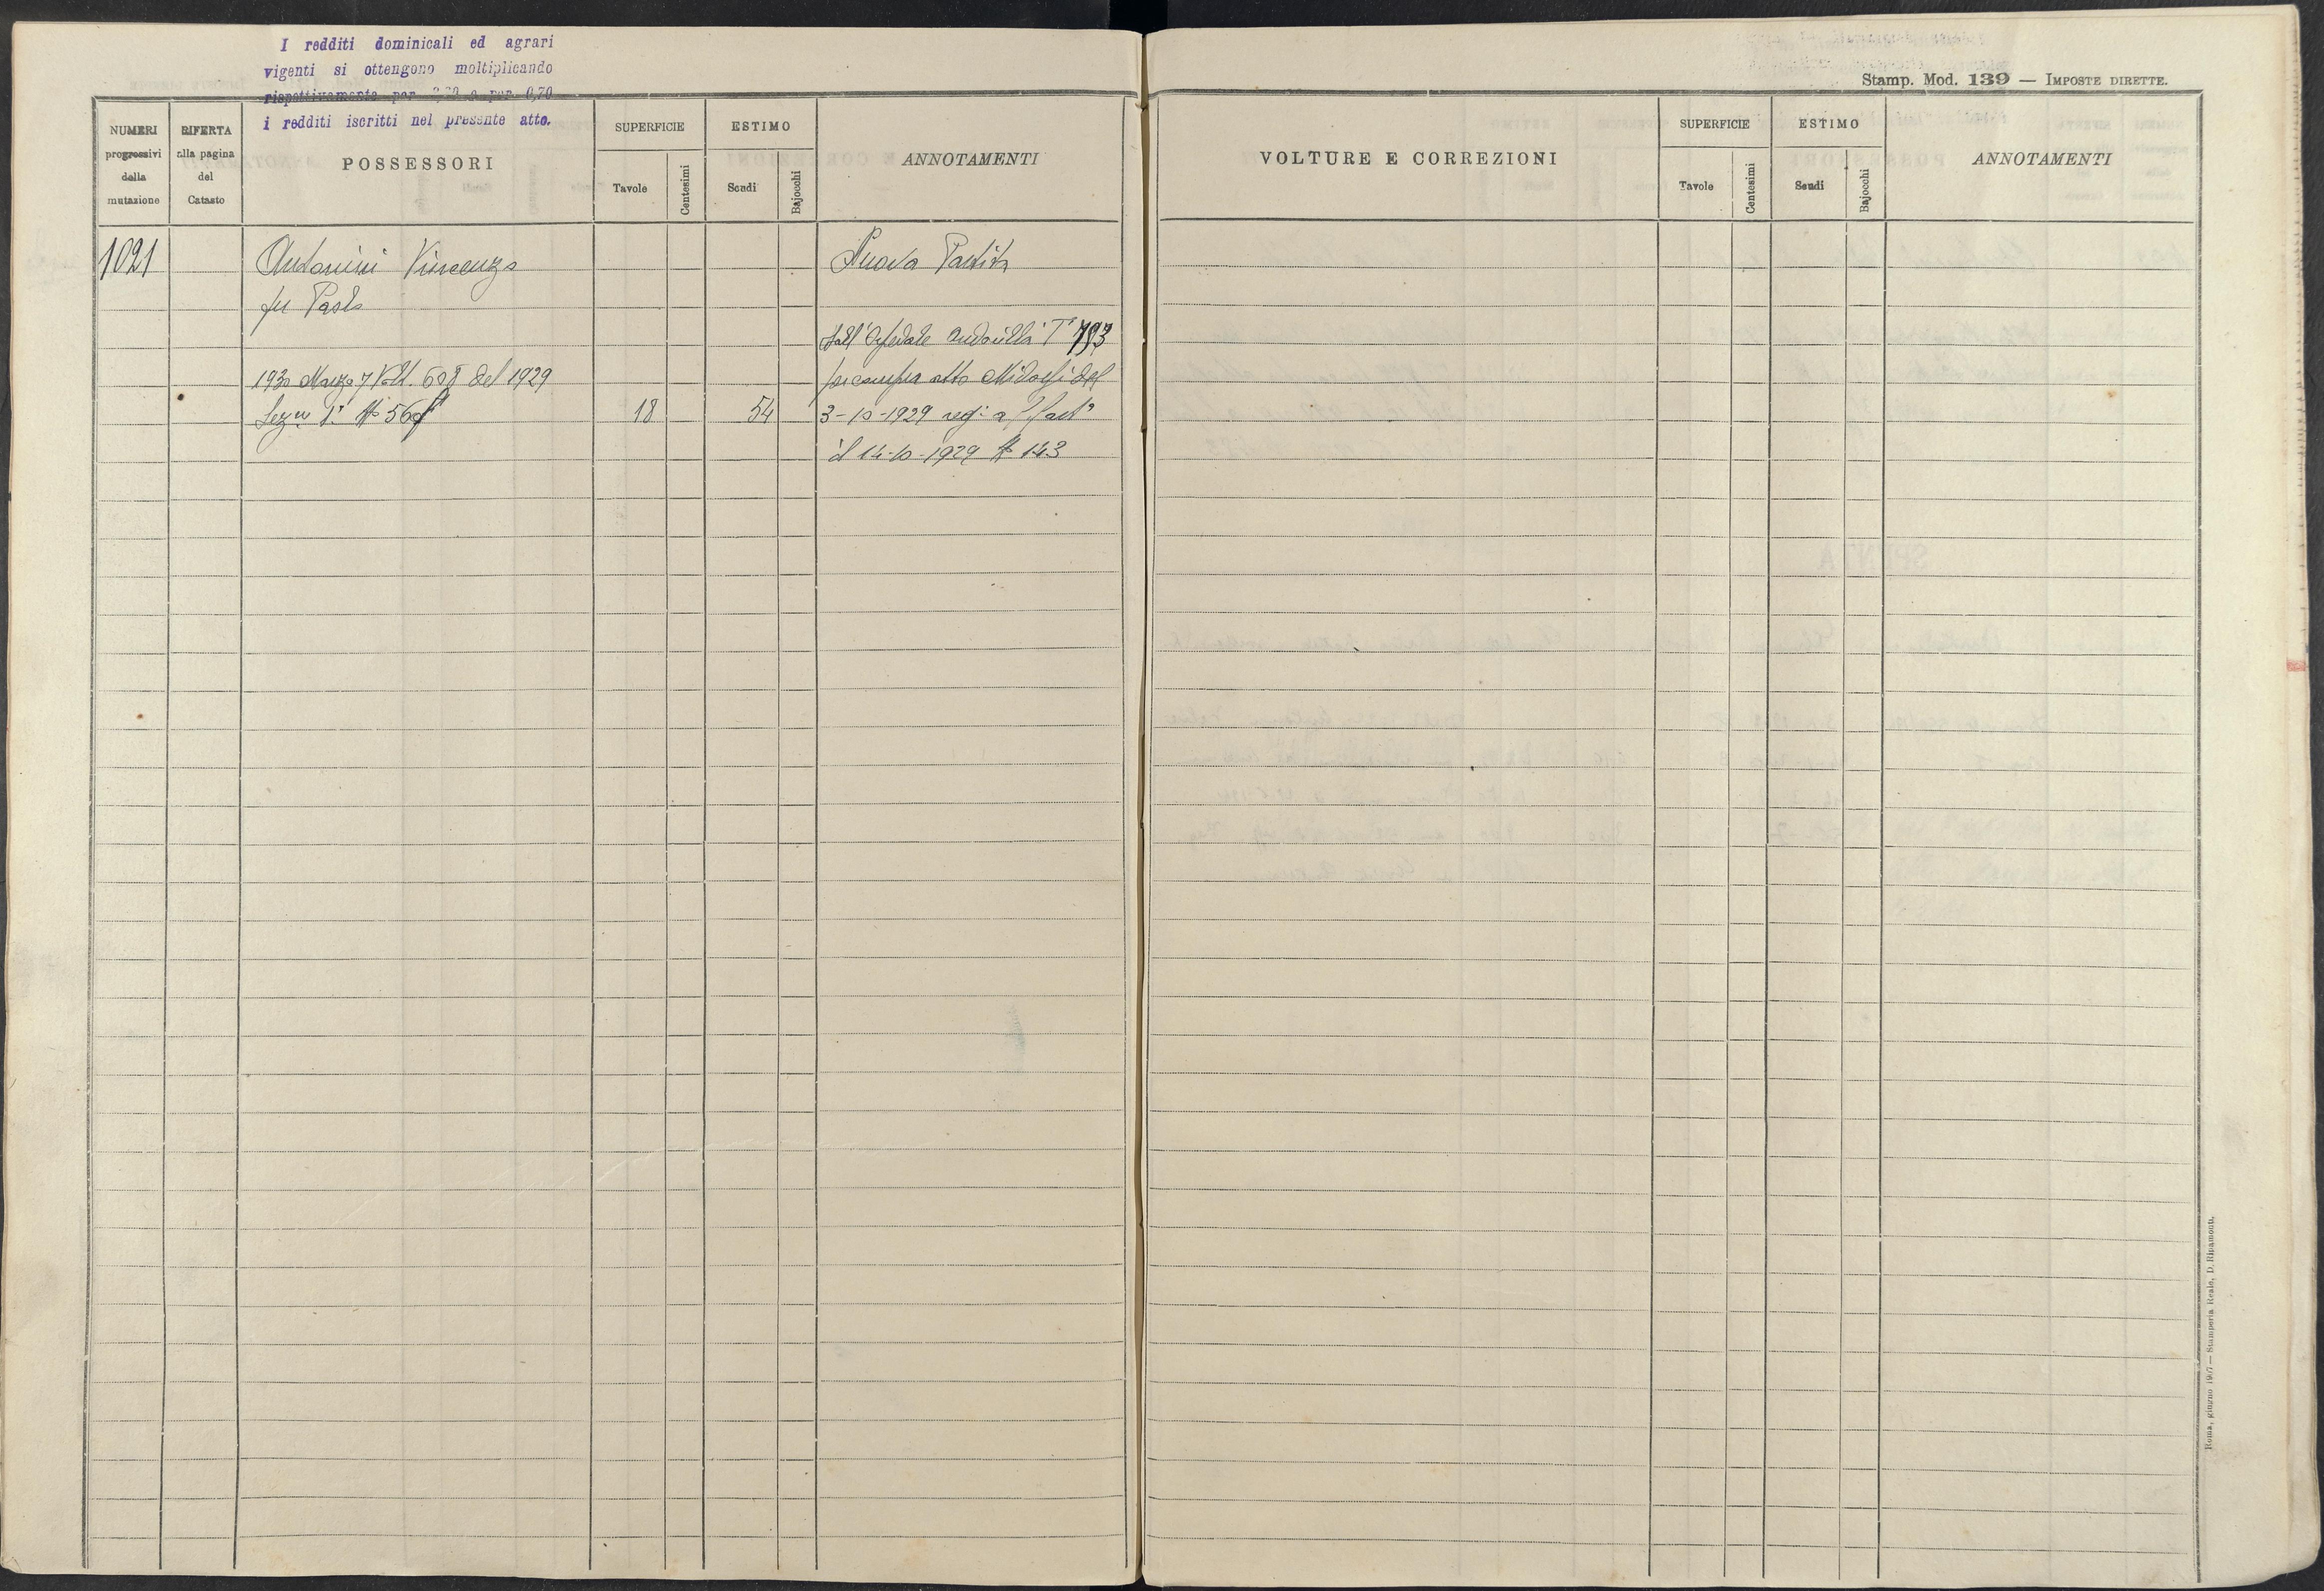 I redditi dominicali ed agrari
vigenti si ottengono moltiplicando
rispettivamente per e per 0,70
i redditi iscritti nel presente atto.
Stamp. Mod. 139 — IMPOSTE DIRETTE.
NUMERI progressivi della mutazione
RIFERTA alla pagina del Catasto
POSSESSORI
SUPERFICIE
Tavole
Centesimi
ESTIMO
Scudi
Bajocchi
ANNOTAMENTI
VOLTURE E CORREZIONI
SUPERFICIE
Tavole
Centesimi
ESTIMO
Scudi
Bajocchi
ANNOTAMENTI
1021
Antonini Vincenzo
Nuova Partita
fu Paolo
dall'Ospedale 793
1930 Marzo 7 Volt. 608 del 1929
per compra atto del
Sez. 1ª N 560
18
54
3-10-1929 reg. a
il 14-10-1929 N 143
Roma, giugno — Stamperia Reale, D. Ripamonti.